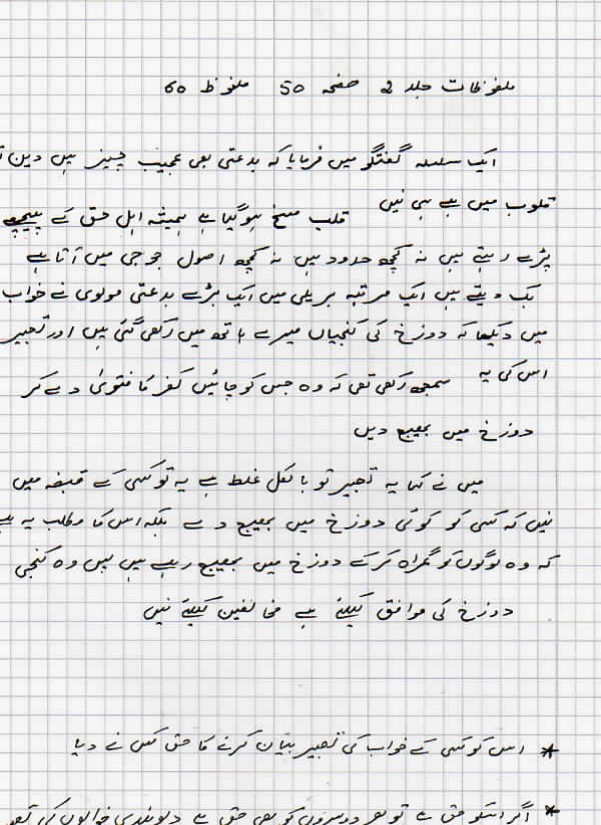 ملفوظات جلد 2 صفحہ 50 ملفوظ 60
ایک سلسلہ گفتگو میں فرمایا کہ بدعتی بھی عجیب چیز ہیں دین
قلوب میں ہے ہی نہیں قلب مسخ ہوگیا ہے ہمیشہ اہل حق کے پیچھے
پڑے رہتے ہیں نہ کچھ حدود ہیں نہ کچھ اصول جو جی میں آتا ہے
بک دیتے ہیں ایک مرتبہ بریلی میں ایک بڑے بدعتی مولوی نے خواب
میں دیکھا کہ دوزخ کی کنجیاں میرے ہاتھ میں رکھی گئی ہیں اور تعبیر
اس کی یہ سمجھ رکھی تھی کہ وہ جس کو چاہیں کفر کا فتویٰ دے کر
دوزخ میں بھیج دیں
میں نے کہا یہ تعبیر تو بالکل غلط ہے یہ تو کسی کے قبضہ میں
نہیں کہ کسی کو کوئی دوزخ میں بھیج دے بلکہ اس کا مطلب یہ ہے
کہ وہ لوگوں کو گمراہ کرکے دوزخ میں بھیج رہے ہیں پس وہ کنجی
دوزخ کی موافق کیلئے ہے مخالفین کیلئے نہیں
* اس کو کسی کے خواب کی تعبیر بیان کرنے کا حق کس نے دیا
* اگر اسکو حق ہے تو پھر دوسروں کو بھی حق ہے دیوبندی خوابوں کی